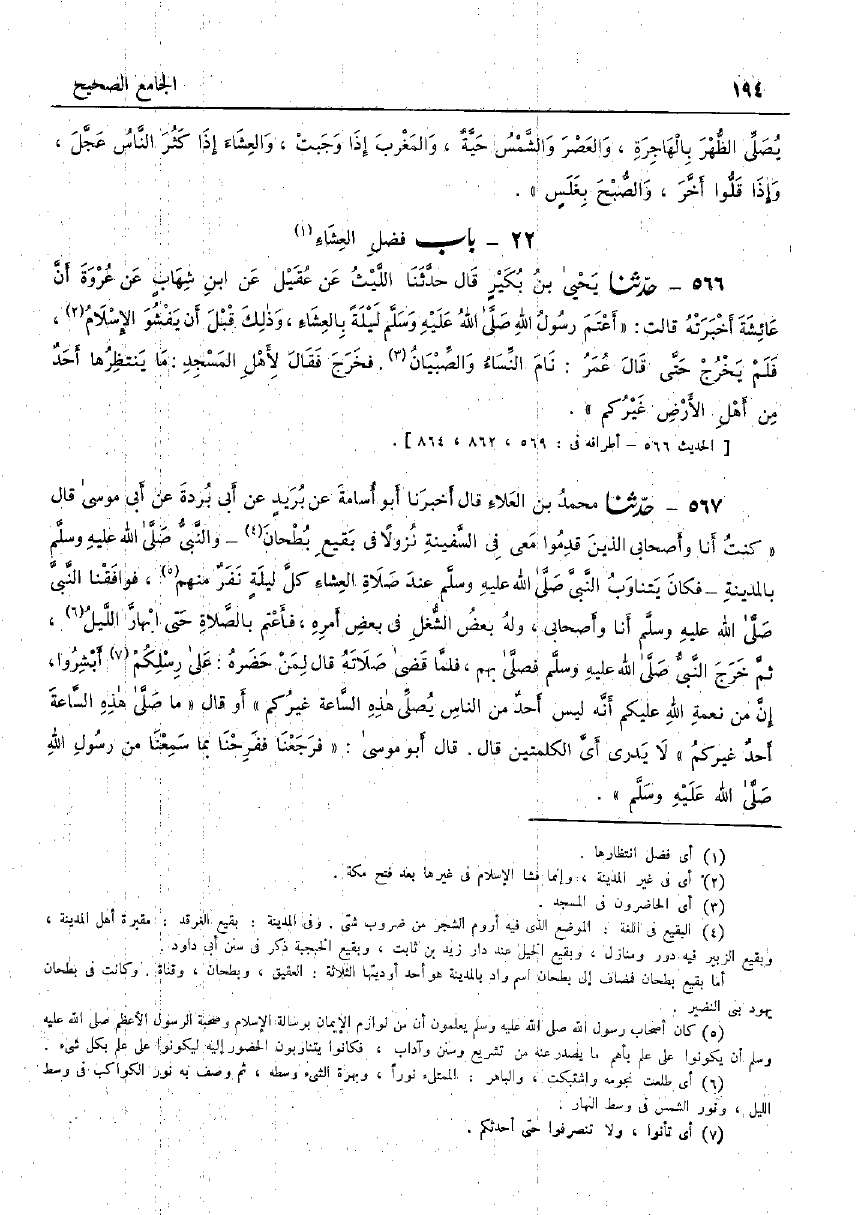 ١٩٤ الجامع الصحيح
يُصَلِّى الظُّهْرَ بِالْهَاجِرَةِ ، وَالعَصْرَ وَالشَّمْسُ حَيَّةٌ ، وَالمَغْرِبَ إِذَا وَجَبَتْ ، وَالعِشَاءَ إِذَا كَثُرَ النَّاسُ عَجَّلَ ،
وَإِذَا قَلُّوا أَخَّرَ ، وَالصُّبْحَ بِغَلَسٍ » .
٢٢ – باب فضلِ العِشَاءِ (١)
٥٦٦ – حدّثنا يَحْيىٰ بنُ بُكَيْرٍ قَال حدَّثَنَا اللَّيْثُ عَن عُقَيْل عَن ابنِ شِهَابٍ عَن عُرْوَةَ أَنَّ
عَائِشَةَ أَخْبَرَتْهُ قالت : « أَعْتَمَ رسولُ اللهِ صَلَّىٰ اللهُ عَلَيْهِ وَسَلَّم لَيْلَةً بِالعِشَاءِ ، وَذٰلِكَ قَبْلَ أَن يَفْشُوَ الإِسْلَامُ (٢) ،
فَلَمْ يَخْرُجْ حَتَّى قَالَ عُمَرُ : نَامَ النِّسَاءُ وَالصِّبْيَانُ (٣) . فخَرَجَ فَقَالَ لِأَهْلِ المَسْجِدِ : مَا يَنتظِرُها أَحَدٌ
مِن أَهْلِ الأَرْضِ غَيْرُكم » .
[ الحديث ٥٦٦ – أطرافه فى : ٥٦٩ ، ٨٦٢ ، ٨٦٤ ] .
٥٦٧ – حدّثنا محمدُ بن العَلاءِ قال أخبرَنا أبو أُسامةَ عن بُرَيدٍ عن أبى بُردةَ عن أبى موسىٰ قال
« كنتُ أنا وأصحابى الذينَ قدِمُوا مَعى فى السَّفينةِ نُزولًا فى بَقيعِ بُطْحانَ (٤) – والنَّبىُّ صَلَّىٰ الله عليهِ وسلَّم
بالمدينةِ – فكانَ يَتناوَبُ النَّبىَّ صَلَّىٰ الله عليهِ وسلَّم عندَ صَلَاةِ العِشاءِ كلَّ ليلةٍ نَفَرٌ منهم (٥) ، فوافَقْنا النَّبىَّ
صَلَّىٰ الله عليهِ وسلَّم أنا وأصحابى ، ولهُ بعضُ الشُّغلِ فى بعضِ أمرِهِ ، فأَعْتَم بالصَّلاةِ حَتى ابْهارَّ اللَّيلُ (٦) ،
ثمَّ خَرَجَ النَّبىُّ صَلَّىٰ الله عليهِ وسلَّم فصلَّىٰ بهم ، فلمَّا قضىٰ صَلَاتَهُ قال لِمَنْ حَضَرهُ : عَلىٰ رِسْلِكُمْ (٧) أَبْشِرُوا ،
إنَّ من نعمةِ اللهِ عليكم أنَّه ليس أحدٌ من الناسِ يُصلِّى هٰذِهِ السَّاعة غيرُكم » أو قال « ما صَلَّىٰ هٰذِهِ السَّاعةَ
أحدٌ غيركمُ » لَا يَدرى أىَّ الكلمتين قال . قال أبو موسىٰ : « فرَجَعْنَا ففَرِحْنَا بما سَمِعْنَا من رسولِ اللهِ
صَلَّىٰ الله عَلَيْهِ وسَلَّم » .
(١) أى فضل انتظارها .
(٢) أى فى غير المدينة ، وإنما فشا الإسلام فى غيرها بعد فتح مكة .
(٣) أى الحاضرون فى المسجد .
(٤) البقيع فى اللغة : الموضع الذى فيه أروم الشجر من ضروب شتى . وفى المدينة : بقيع الغرقد : مقبرة أهل المدينة ،
وبقيع الزبير فيه دور ومنازل ، وبقيع الخيل عند دار زيد بن ثابت ، وبقيع الخبجبة ذكر فى سنن أبى داود .
أما بقيع بطحان فمضاف إلى بطحان اسم واد بالمدينة هو أحد أوديتها الثلاثة : العقيق ، وبطحان ، وقناة . وكانت فى بطحان
يهود بنى النضير .
(٥) كان أصحاب رسول الله صلى الله عليه وسلم يعلمون أن من لوازم الإيمان برسالة الإسلام وصحبة الرسول الأعظم صلى الله عليه
وسلم أن يكونوا على علم بأهم ما يصدر عنه من تشريع وسنن وآداب ، فكانوا يتناوبون الحضور إليه ليكونوا على علم بكل شىء .
(٦) أى طلعت نجومه واشتبكت ، والباهر : الممتلء نوراً ، وبهرة الشىء وسطه ، ثم وصف به نور الكواكب فى وسط
الليل ، ونور الشمس فى وسط النهار .
(٧) أى تأنوا ، ولا تنصرفوا حتى أحدثكم .